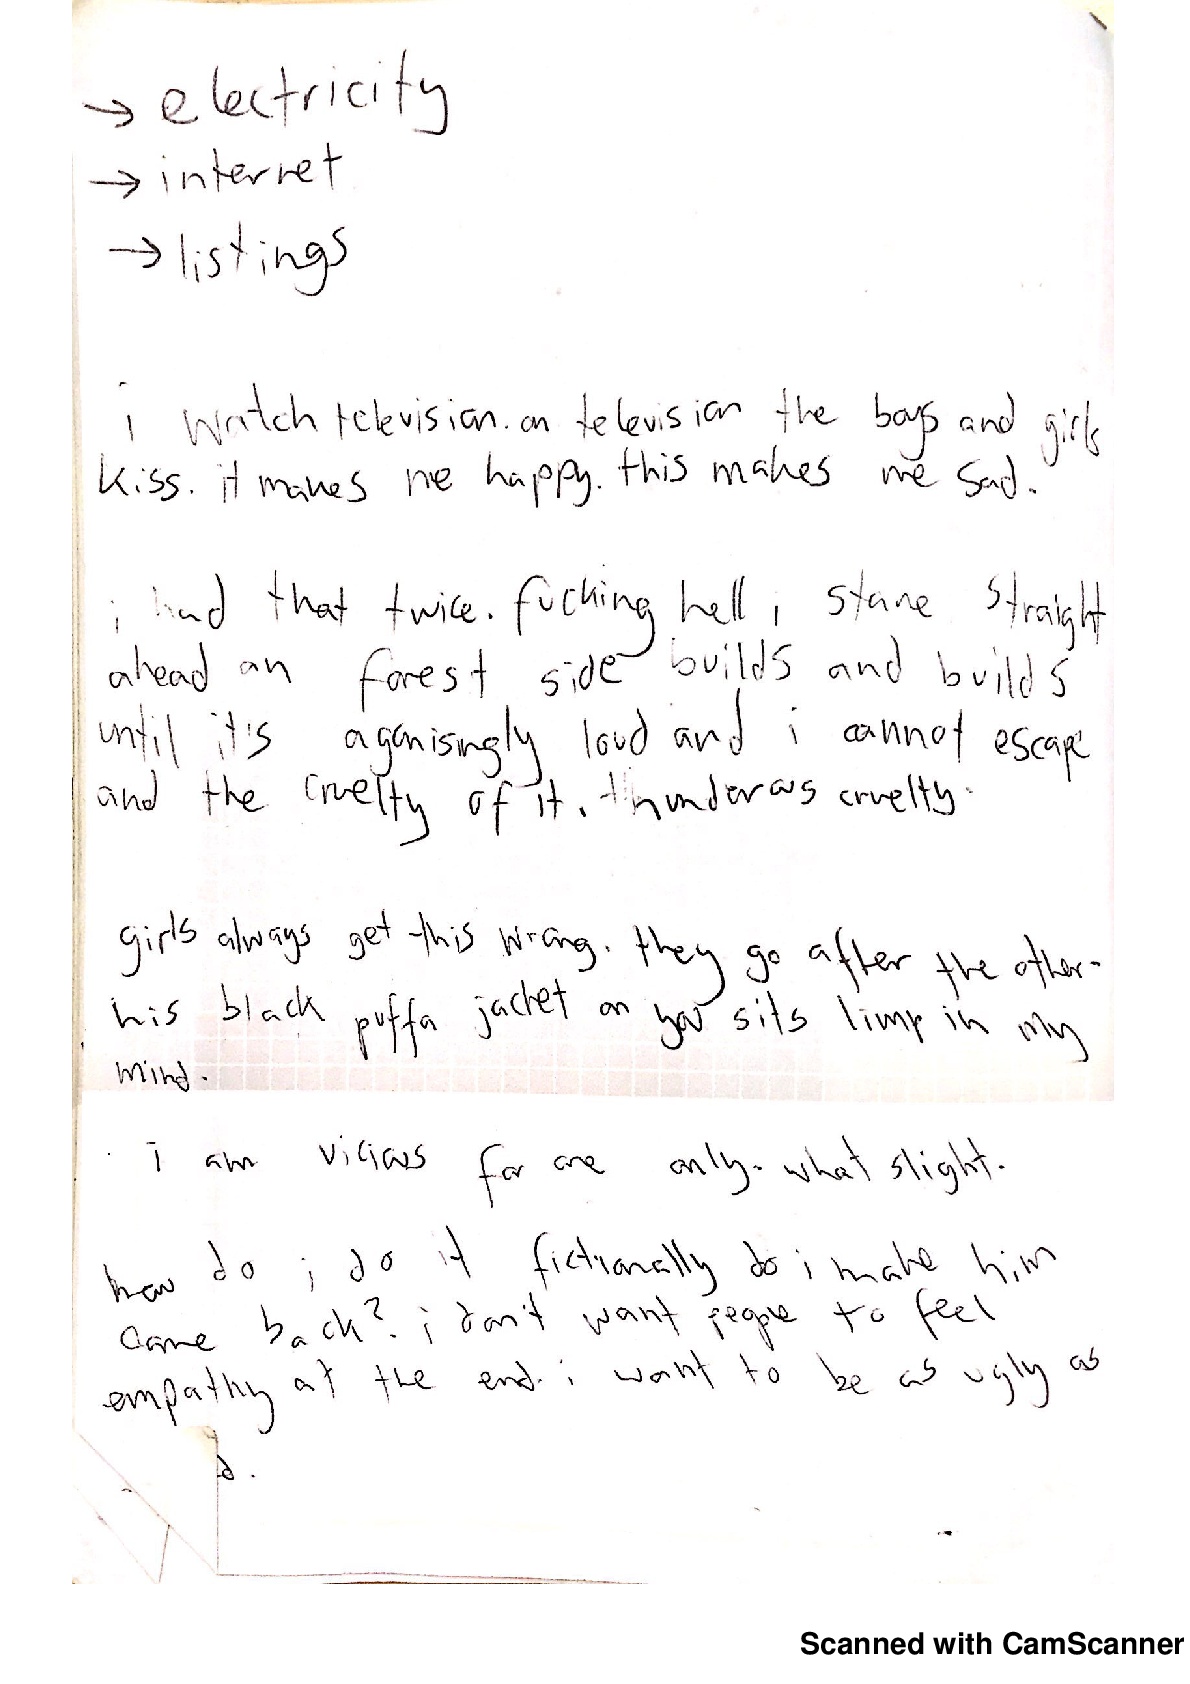 → electricity
→ internet
→ listings
i watch television. on television the boys and girls
kiss. it makes me happy. this makes me sad.
i had that twice. fucking hell i stare straight
ahead on forest side builds and builds
until it's agonisingly loud and i cannot escape
and the cruelty of it. thunderous cruelty.
girls always get this wrong. they go after the other-
his black puffa jacket on you sits limp in my
mind.
i am vicious for one only. what slight.
how do i do it fictionally do i make him
come back? i don't want people to feel
empathy at the end. i want to be as ugly as
d.
Scanned with CamScanner